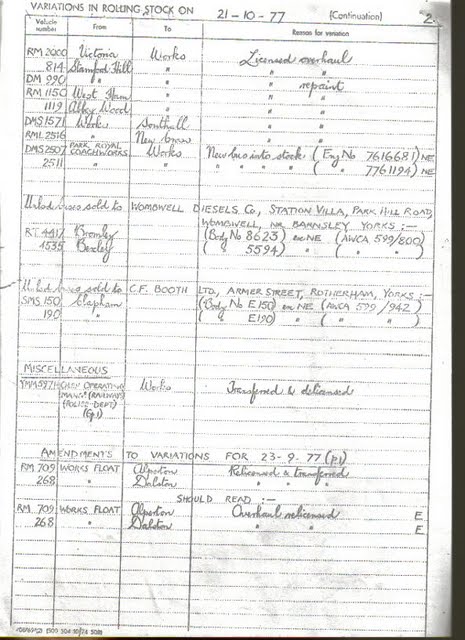 VARIATIONS IN ROLLING STOCK ON 21-10-77 (Continuation) 2.
Vehicle number From To Reason for variation
RM 2000 Victoria Works Licensed overhaul
814 Stamford Hill " " "
DM 990 " " " repaint
RM 1150 West Ham " " "
1119 Abbey Wood " " "
DMS 1571 Works Southall " "
RML 2516 " New Cross " "
DMS 2507 PARK ROYAL COACHWORKS Works New bus into stock (Eng No 7616681) NE
2511 " " " " " " ( " 7761194) NE
sold to WOMBWELL DIESELS Co, STATION VILLA, PARK HILL ROAD,
WOMBWELL, NR BARNSLEY YORKS :-
RT 4417 Bromley (Body No 8623) ex NE (AWCA 599/800)
4535 Bexley ( " 5594)
sold to C.F. BOOTH LTD, ARMER STREET, ROTHERHAM, YORKS :-
SMS 150 Clapham (Body No E150) ex NE (AWCA 599/942)
190 " ( " E190) " ( " )
MISCELLANEOUS
CHIEF OPERATING Works Transferred & delicensed
MANGR (RAILWAYS)
(POLICE DEPT)
(Gp1)
AMENDMENTS TO VARIATIONS FOR 23-9-77 (p1)
RM 709 WORKS FLOAT Alperton Relicensed & transferred
268 " Dalston " "
SHOULD READ :-
RM 709 WORKS FLOAT Alperton Overhaul relicensed E
268 " Dalston " " E